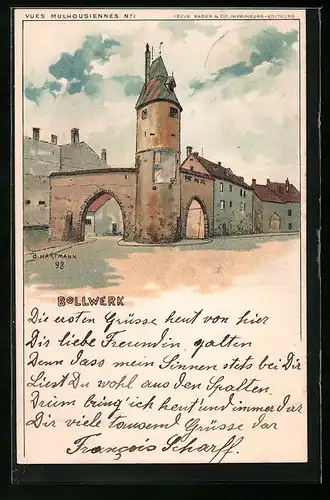 VUES MULHOUSIENNES No 1
VEUVE BADER & CIE, IMPRIMEURS-EDITEURS
G. HARTMANN
98
BOLLWERK
Die ersten Grüsse heut von hier
Dir liebe Freundin, galten
Denn dass mein Sinnen stets bei Dir
Liest Du wohl aus den Spalten.
Drum bring' ich heut' und immerdar
Dir viele tausend Grüsse dar
François Scharff.